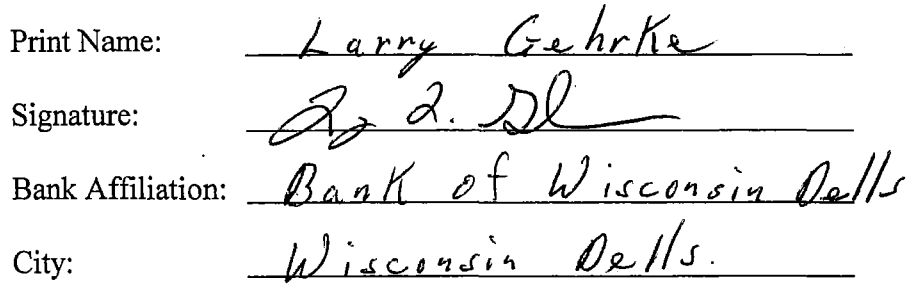 Print Name: Larry Gehrke
Signature:
Bank Affiliation: Bank of Wisconsin Dells
City: Wisconsin Dells.